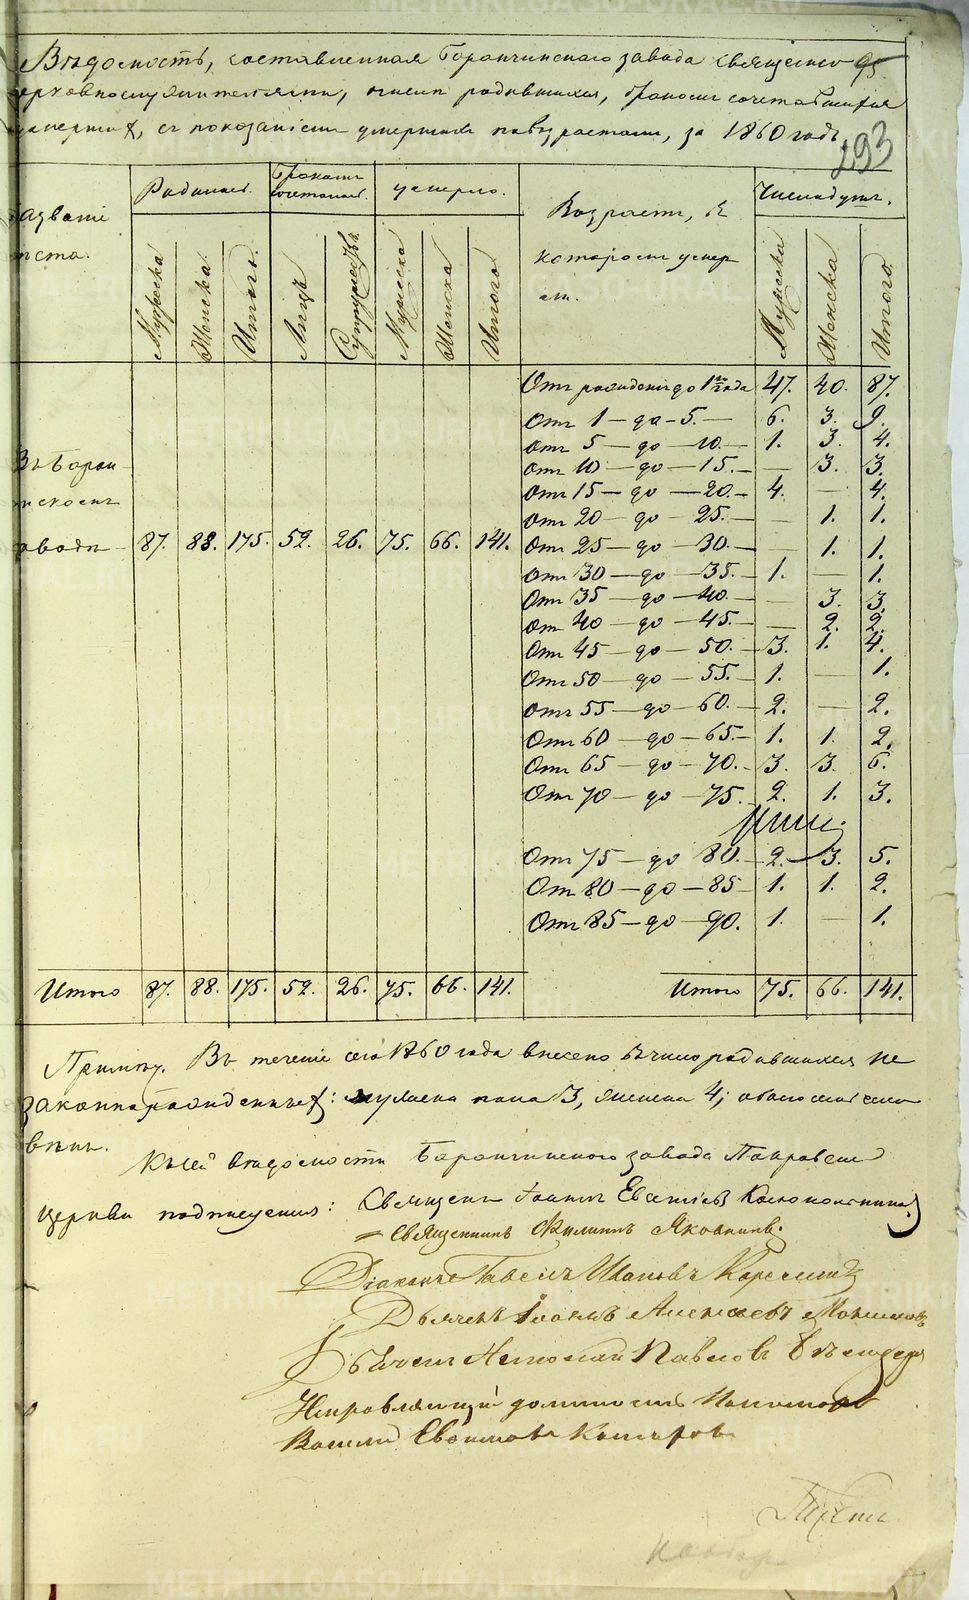 Вѣдомость, составленная Баранчинскаго завода священно
церковнослужителями, о числѣ родившихся, бракомъ сочетавшихся
умершихъ, съ показаніемъ умершихъ по возрастамъ, за 1860 годъ.
95
193
Названіе мѣста.
Родилось.
Бракомъ сочеталось.
Умерло.
Возрастъ, въ которомъ умер
Число душъ.
Мужеска Женска Итого. Лицъ Супружествъ Мужеска Женска Итого Мужеска Женска Итого
Отъ рожденія до 1го года 47. 40. 87.
Отъ 1 — до — 5. — 6. 3. 9.
Отъ 5 — до — 10. — 1. 3. 4.
Отъ 10 — до — 15. — — 3. 3.
Отъ 15 — до — 20. — 4. — 4.
Отъ 20 — до — 25. — — 1. 1.
Въ Баран
заводѣ 87. 88. 175. 52. 26. 75. 66. 141. Отъ 25 — до — 30. — — 1. 1.
Отъ 30 — до — 35. — 1. — 1.
Отъ 35 — до — 40. — — 3. 3.
Отъ 40 — до — 45. — — 2. 2.
Отъ 45 — до — 50. — 3. 1. 4.
Отъ 50 — до — 55. — 1. — 1.
Отъ 55 — до — 60. — 2. — 2.
Отъ 60 — до — 65. — 1. 1. 2.
Отъ 65 — до — 70. — 3. 3. 6.
Отъ 70 — до — 75. 2. 1. 3.
Отъ 75 — до 80. — 2. 3. 5.
Отъ 80 — до — 85 1. 1. 2.
Отъ 85 — до — 90. 1. — 1.
Итого 87. 88. 175. 52. 26. 75. 66. 141. Итого 75. 66. 141.
Примѣч. Въ теченіе сего 1860 года внесено въ число родившихся не
законнорожденныхъ: мужеска пола 3, женска 4;
Къ сей вѣдомости Баранчинскаго завода Покровской
церкви подписуемся: Священникъ Іоаннъ
Священникъ Филиппъ Яковкинъ.
Діаконъ Павелъ Ивановъ
Дьячекъ Іоаннъ Алексѣевъ
Николай Павловъ
Исправляющій должность Пономаря
Василій Комаровъ
METRIKI.GASO-URAL.RU